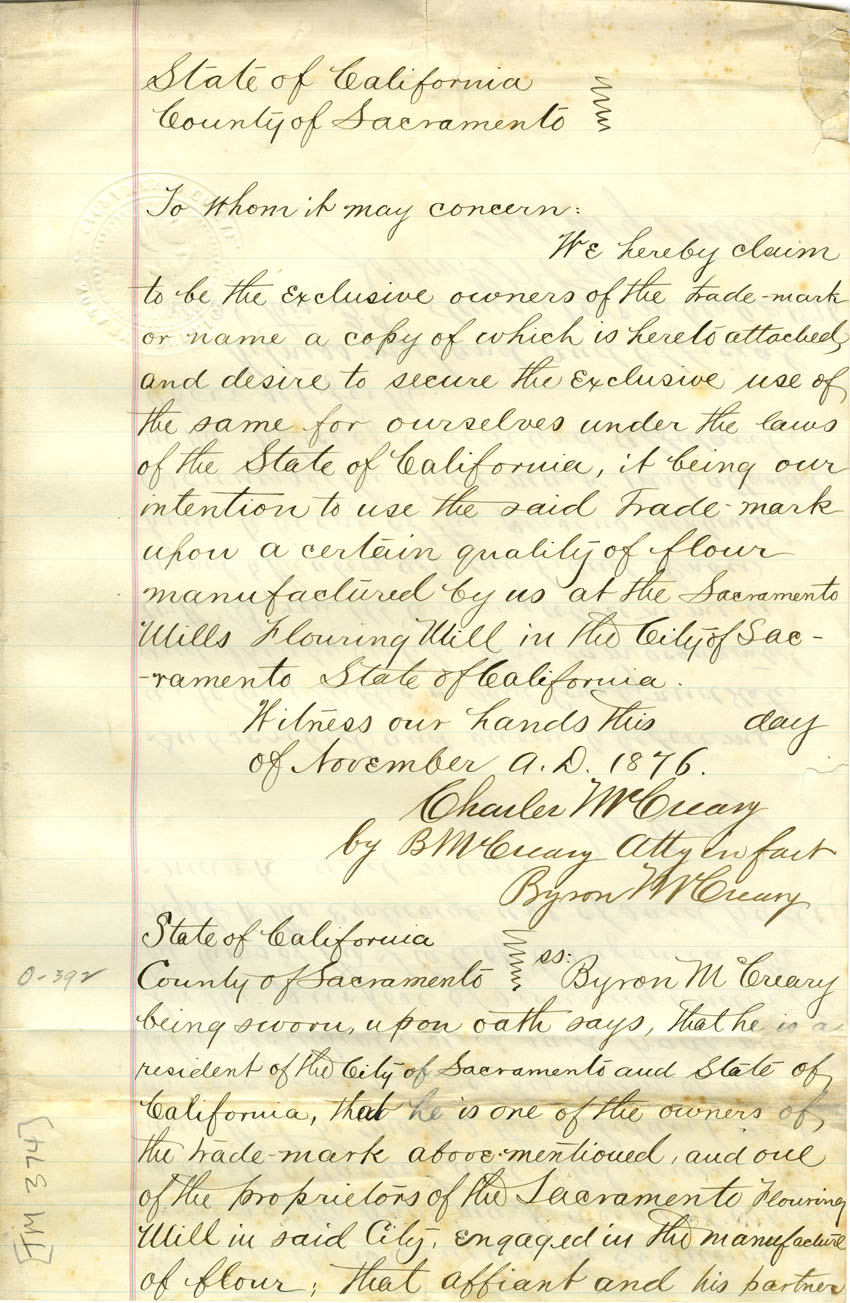 State of California
County of Sacramento
To whom it may concern:
We hereby claim
to be the exclusive owners of the trade-mark
or name a copy of which is hereto attached,
and desire to secure the exclusive use of
the same for ourselves under the laws
of the State of California, it being our
intention to use the said trade-mark
upon a certain quality of flour
manufactured by us at the Sacramento
Mills Flouring Mill in the City of Sac-
-ramento State of California.
Witness our hands this day
of November A.D. 1876.
Charles McCreary
by B McCreary Atty in fact
Byron McCreary
State of California
County of Sacramento ss: Byron McCreary
being sworn, upon oath says, that he is a
resident of the City of Sacramento and State of
California, that he is one of the owners of
the trade-mark above-mentioned, and one
of the proprietors of the Sacramento Flouring
Mill in said City, engaged in the manufacture
of flour; that affiant and his partner
0-392
[TM 374]